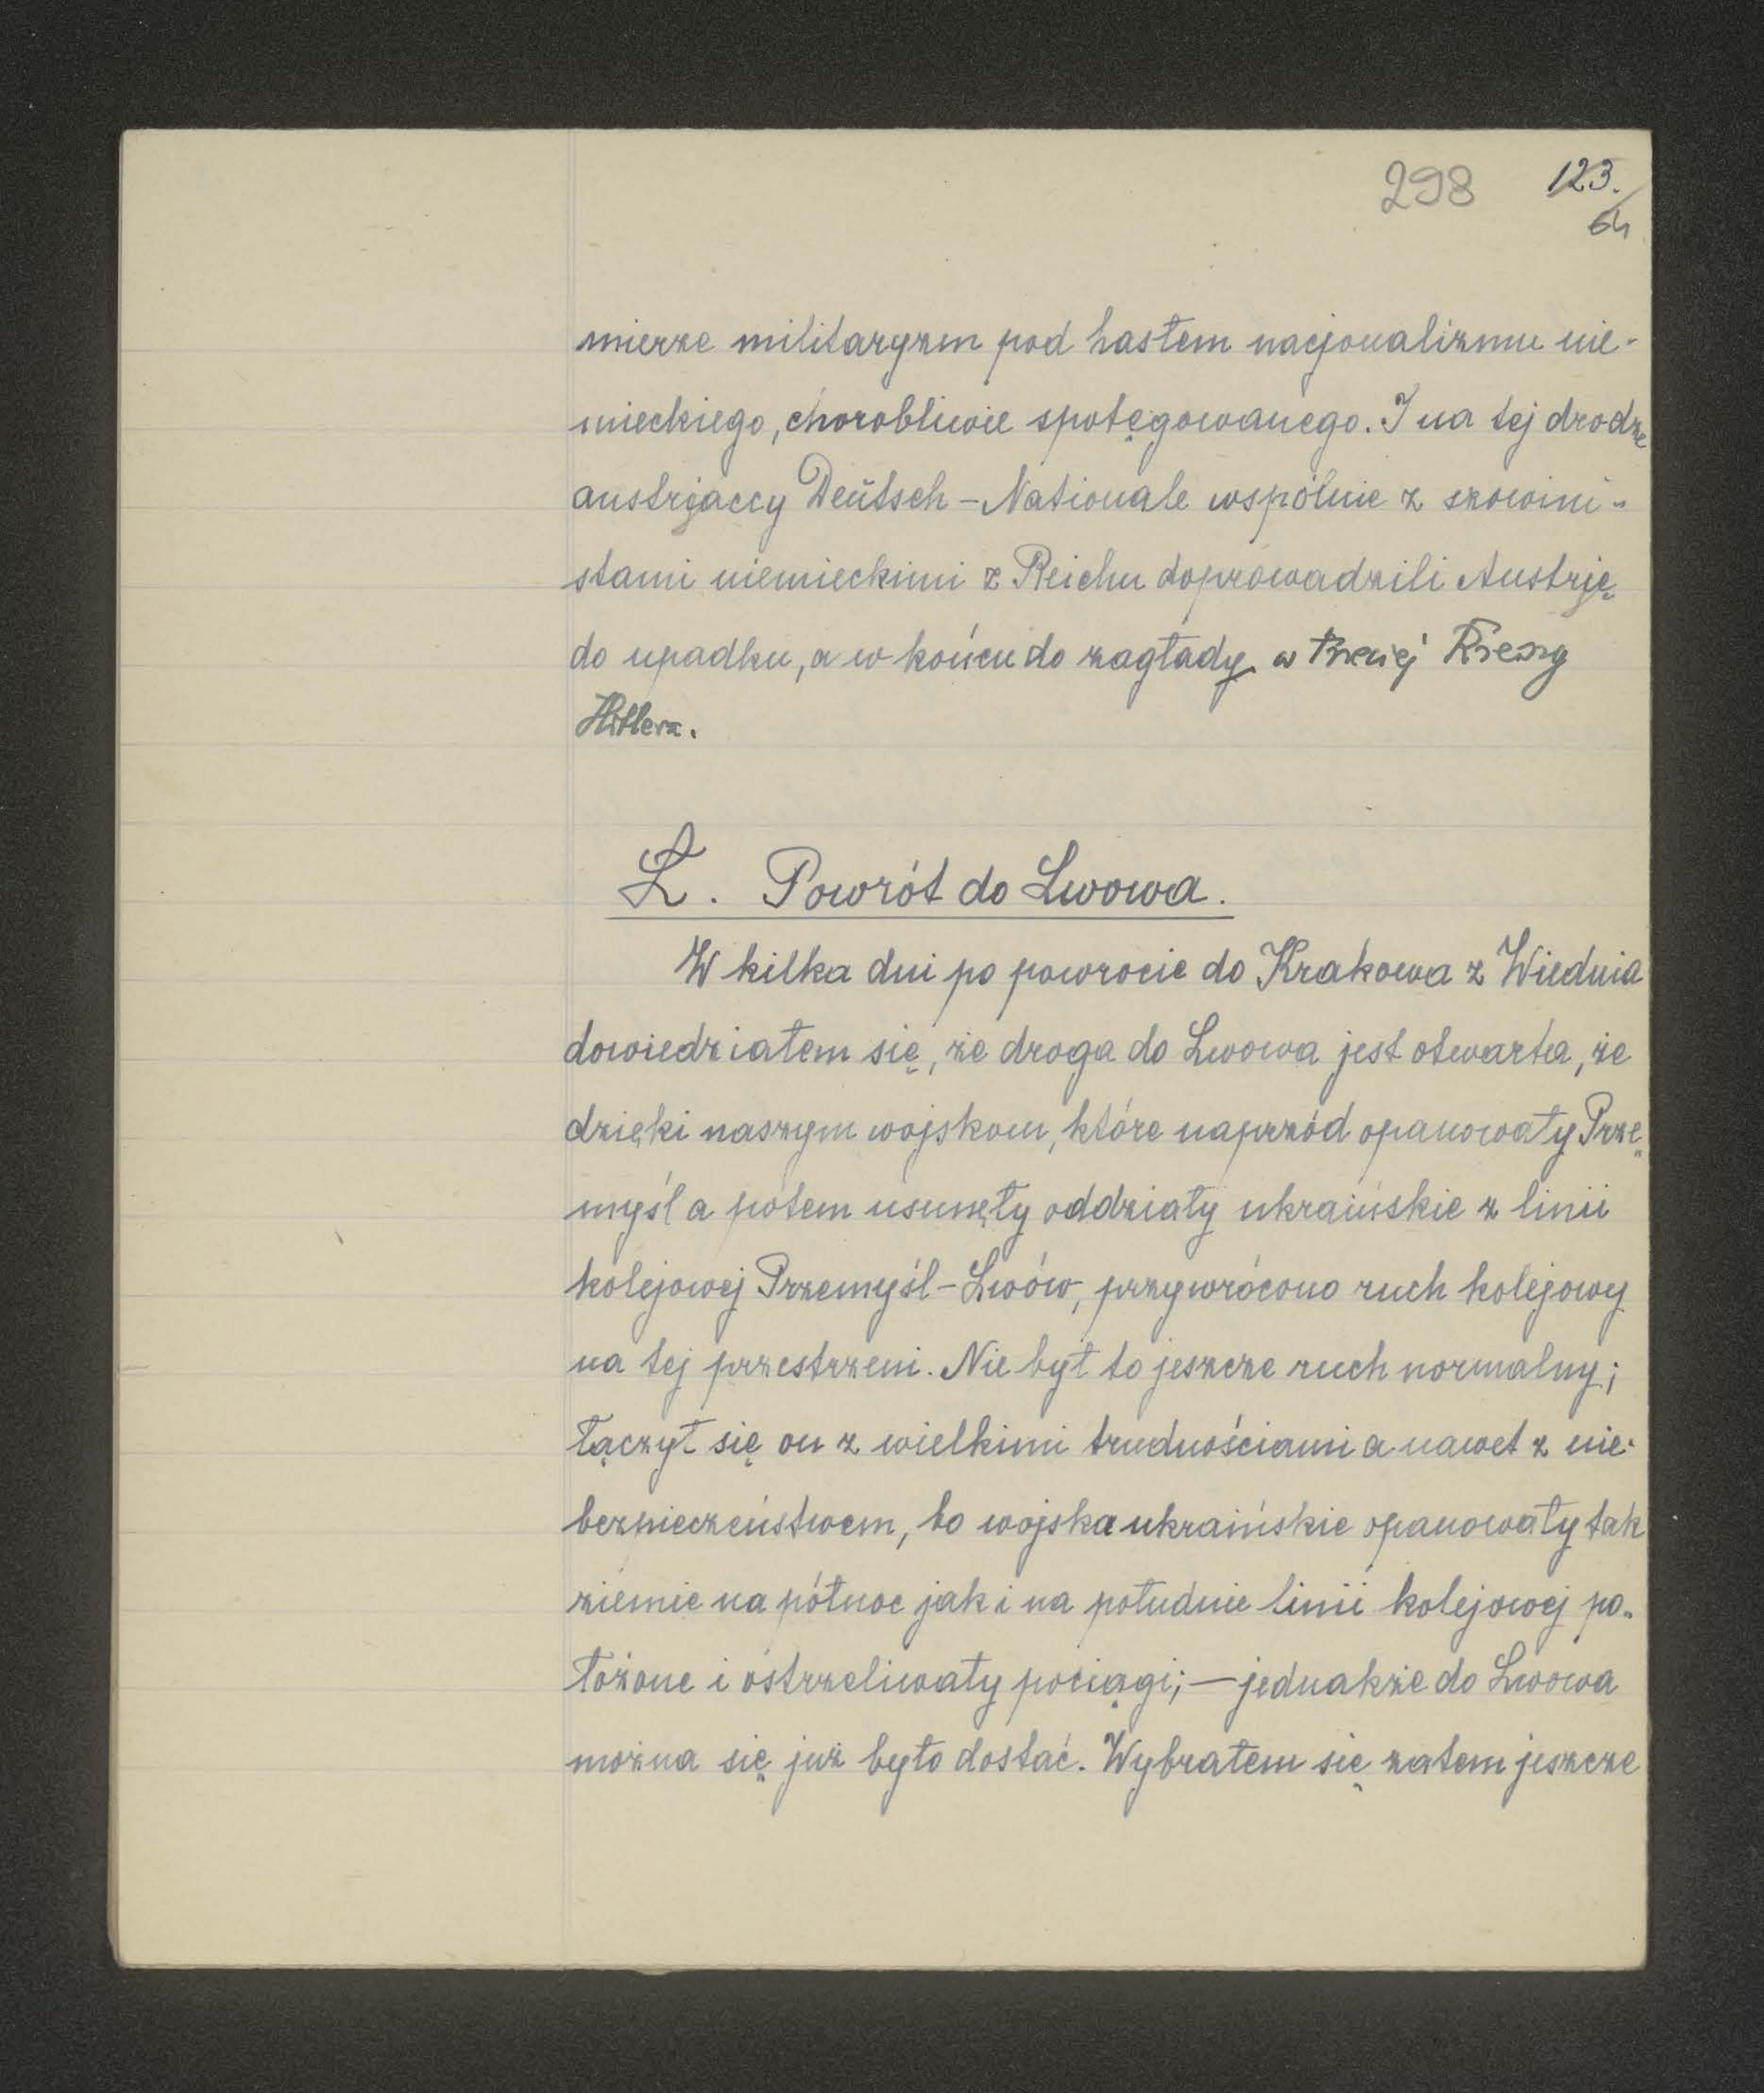 298 123.
64
mierze militaryzm pod hasłem nacjonalizmu nie-
mieckiego, chorobliwie spotęgowanego. I na tej drodze
austrjaccy Deŭtsch-Nationale wspólnie z szowini-
stami niemieckimi z Reichu doprowadzili Austrję
do upadku, a w końcu do zagłady w Trzeciej Rzeszy
Hitlera.
Ł. Powrót do Lwowa.
W kilka dni po powrocie do Krakowa z Wiednia
dowiedziałem się, że droga do Lwowa jest otwarta, że
dzięki naszym wojskom, które naprzód opanowały Prze-
myśl a potem usunęły oddziały ukraińskie z linii
kolejowej Przemyśl-Lwów, przywrócono ruch kolejowy
na tej przestrzeni. Nie był to jeszcze ruch normalny;
łączył się on z wielkimi trudnościami a nawet z nie-
bezpieczeństwem, bo wojska ukraińskie opanowały tak
ziemie na północ jak i na południe linii kolejowej po-
łożone i ostrzeliwały pociągi; — jednakże do Lwowa
można się już było dostać. Wybrałem się zatem jeszcze